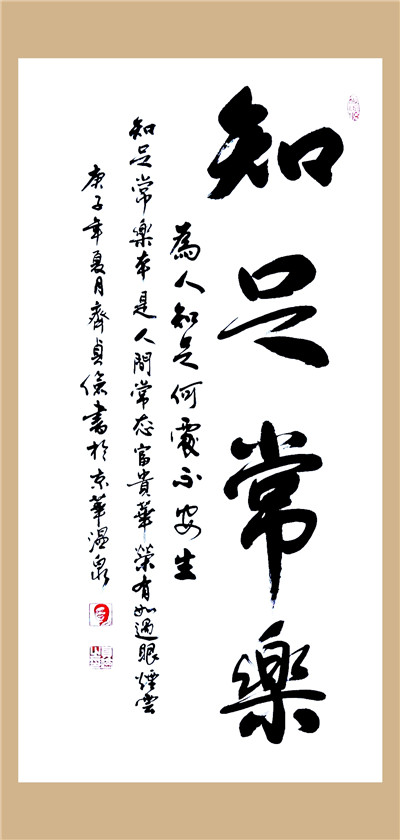 知足常樂
為人知足何處不安生
知足常樂本是人間常态富貴華榮有如過眼煙雲
庚子年夏月齊貞儉書於京華溫泉